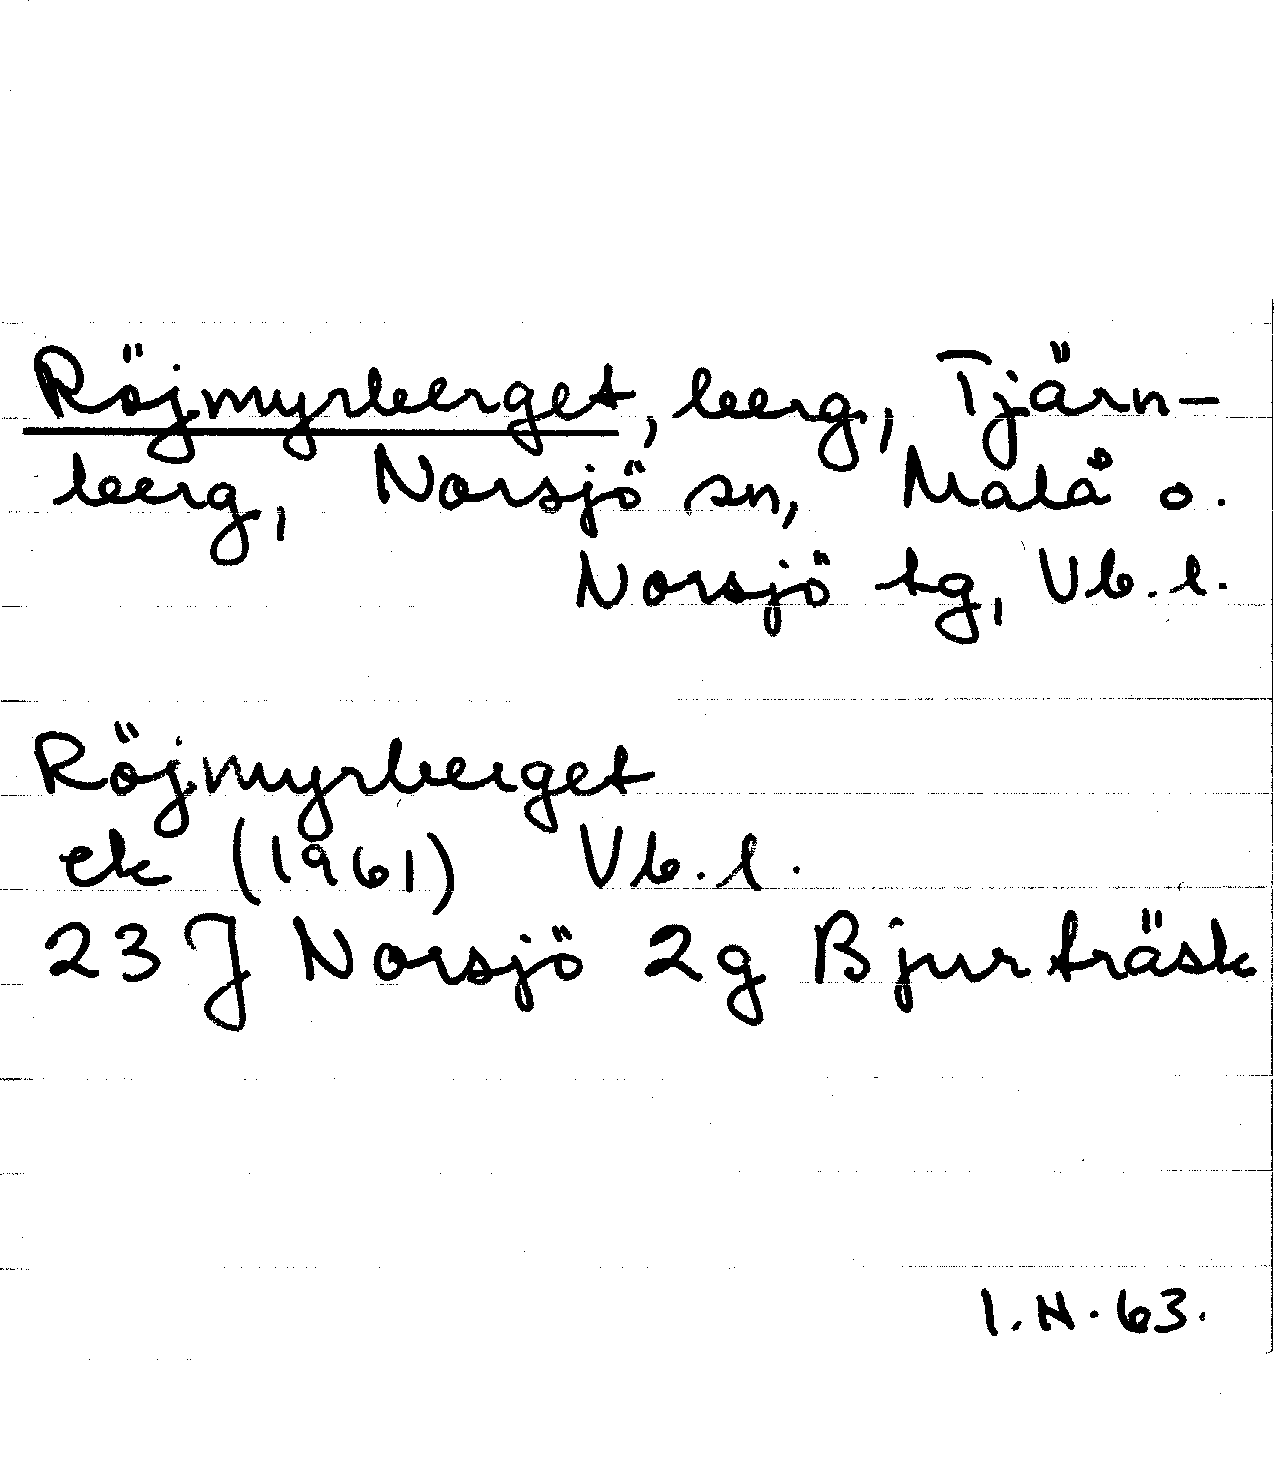 Röjmyrberget, berg, Tjärn-
berg, Norsjö sn, Malå o.
Norsjö tg, Vb. l.
Röjmyrberget
ek (1961) Vb. l.
23 J Norsjö 2g Bjurträsk
I. N. 63.